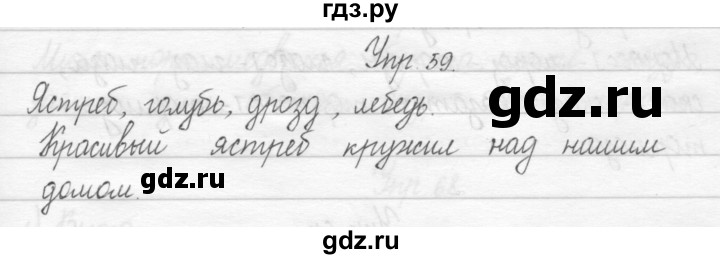 гдз.ру
Упр. 59.
Ястреб, голубь, дрозд, лебедь.
gdz.ru
Красивый ястреб кружил над нашим
домом.
gdz.ru
gdz.ru